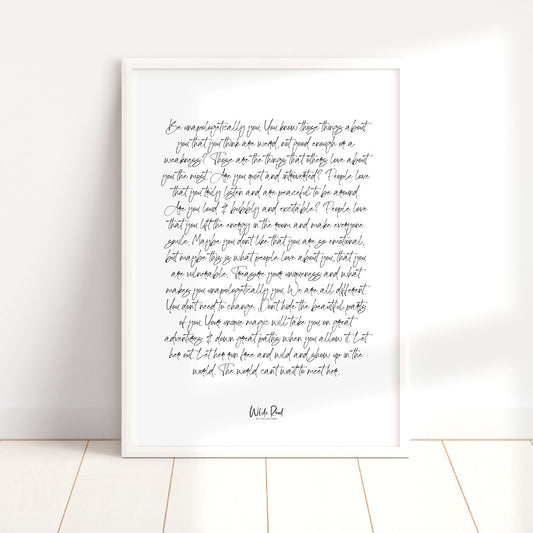 Be unapologetically you. You know those things about
you that you think are weird, not good enough or a
weakness? Those are the things that others love about
you the most. Are you quiet and introverted? People love
that you truly listen and are peaceful to be around.
Are you loud & bubbly and excitable? People love
that you lift the energy in the room and make everyone
smile. Maybe you don't like that you are so emotional,
but maybe this is what people love about you, that you
are vulnerable. Treasure your uniqueness and what
makes you unapologetically you. We are all different.
You don't need to change. Don't hide the beautiful parts
of you. Your unique magic will take you on great
adventures & down great paths when you allow it. Let
her out. Let her run free and wild and show up in the
world. The world can't wait to meet her.
Wilde Road